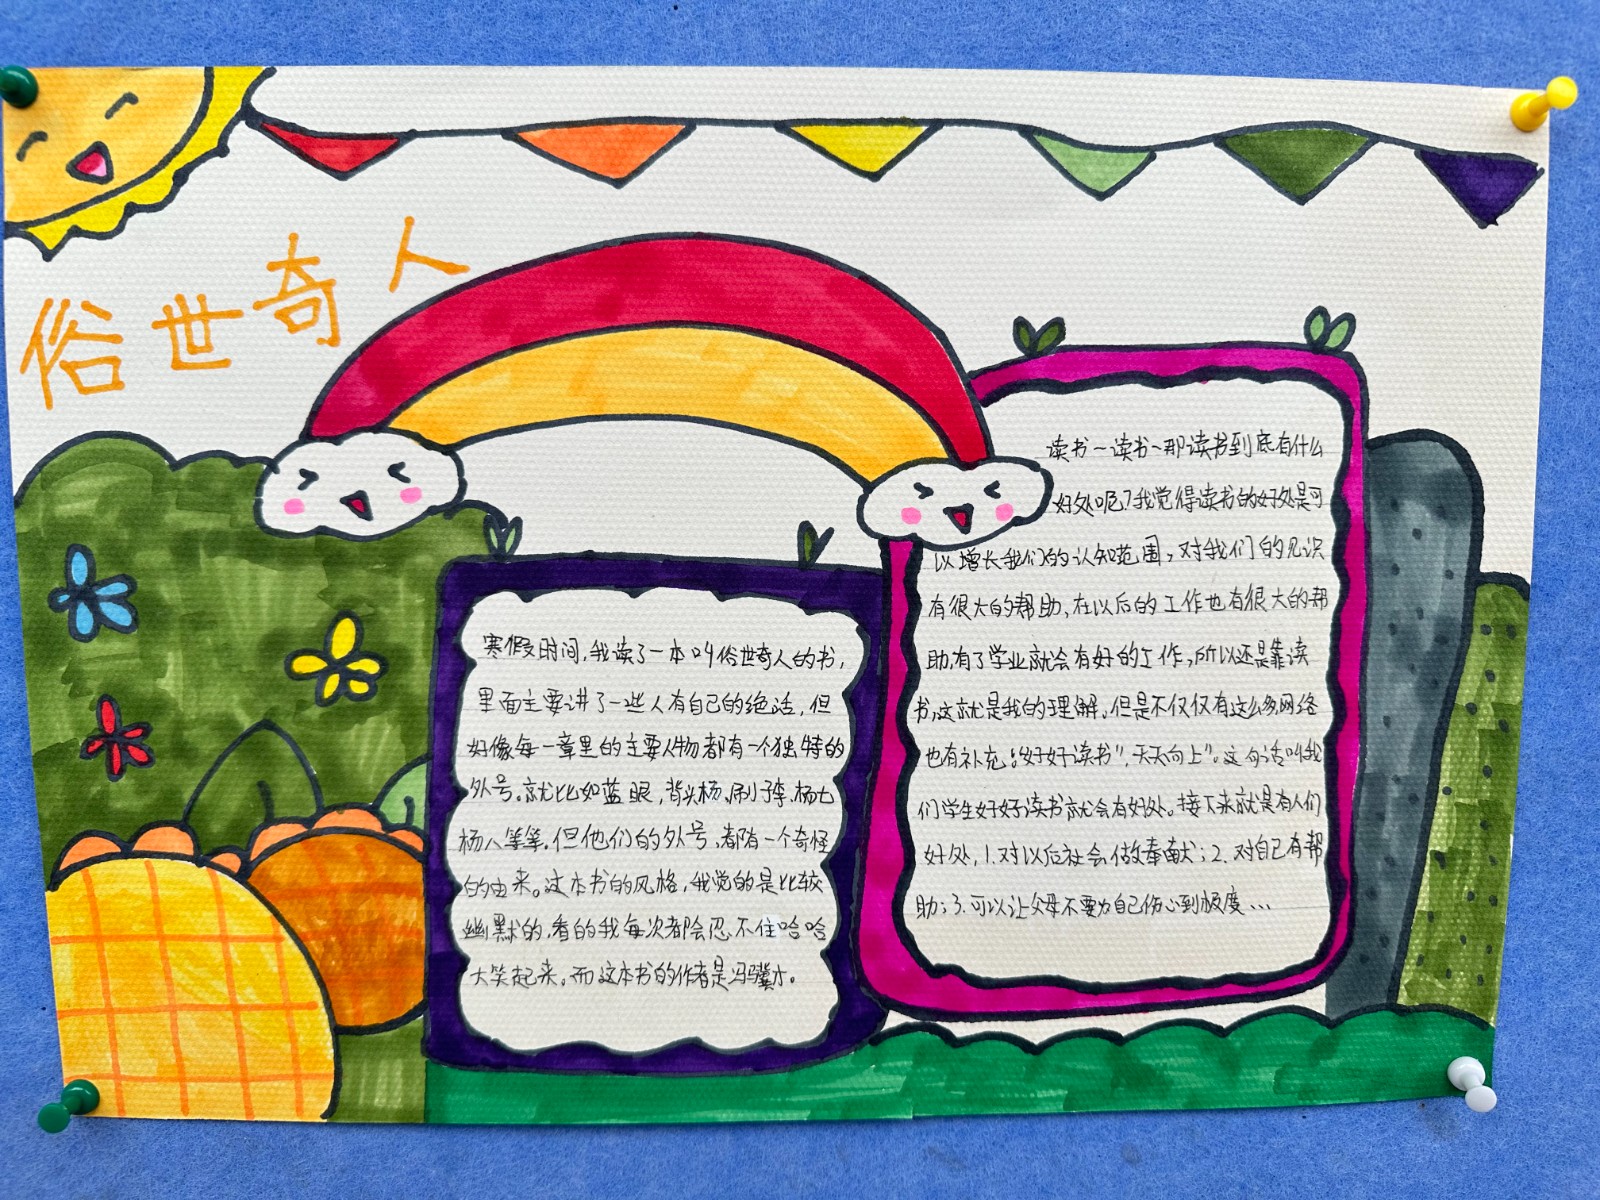 俗世奇人
寒假时间,我读了一本叫俗世奇人的书,
里面主要讲了一些人有自己的绝活,但
好像每一章里的主要人物都有一个独特的
外号。就比如蓝眼,背头杨、刷子李、杨七
杨八等等。但他们的外号、都有一个奇怪
的由来。这本书的风格,我觉的是比较
幽默的,看的我每次都会忍不住哈哈
大笑起来。而这本书的作者是冯骥才。
读书~读书~那读书到底有什么
好处呢?我觉得读书的好处是可
以增长我们的认知范围,对我们的见识
有很大的帮助,在以后的工作也有很大的帮
助,有了学业就会有好的工作,所以还是靠读
书,这就是我的理解。但是不仅仅有这么多,网络
也有补充:“好好读书”,天天向上”。这句话叫我
们学生好好读书就会有好处。接下来就是有人们
好处,1.对以后社会做奉献;2.对自己有帮
助;3.可以让父母不要为自己伤心到极度…